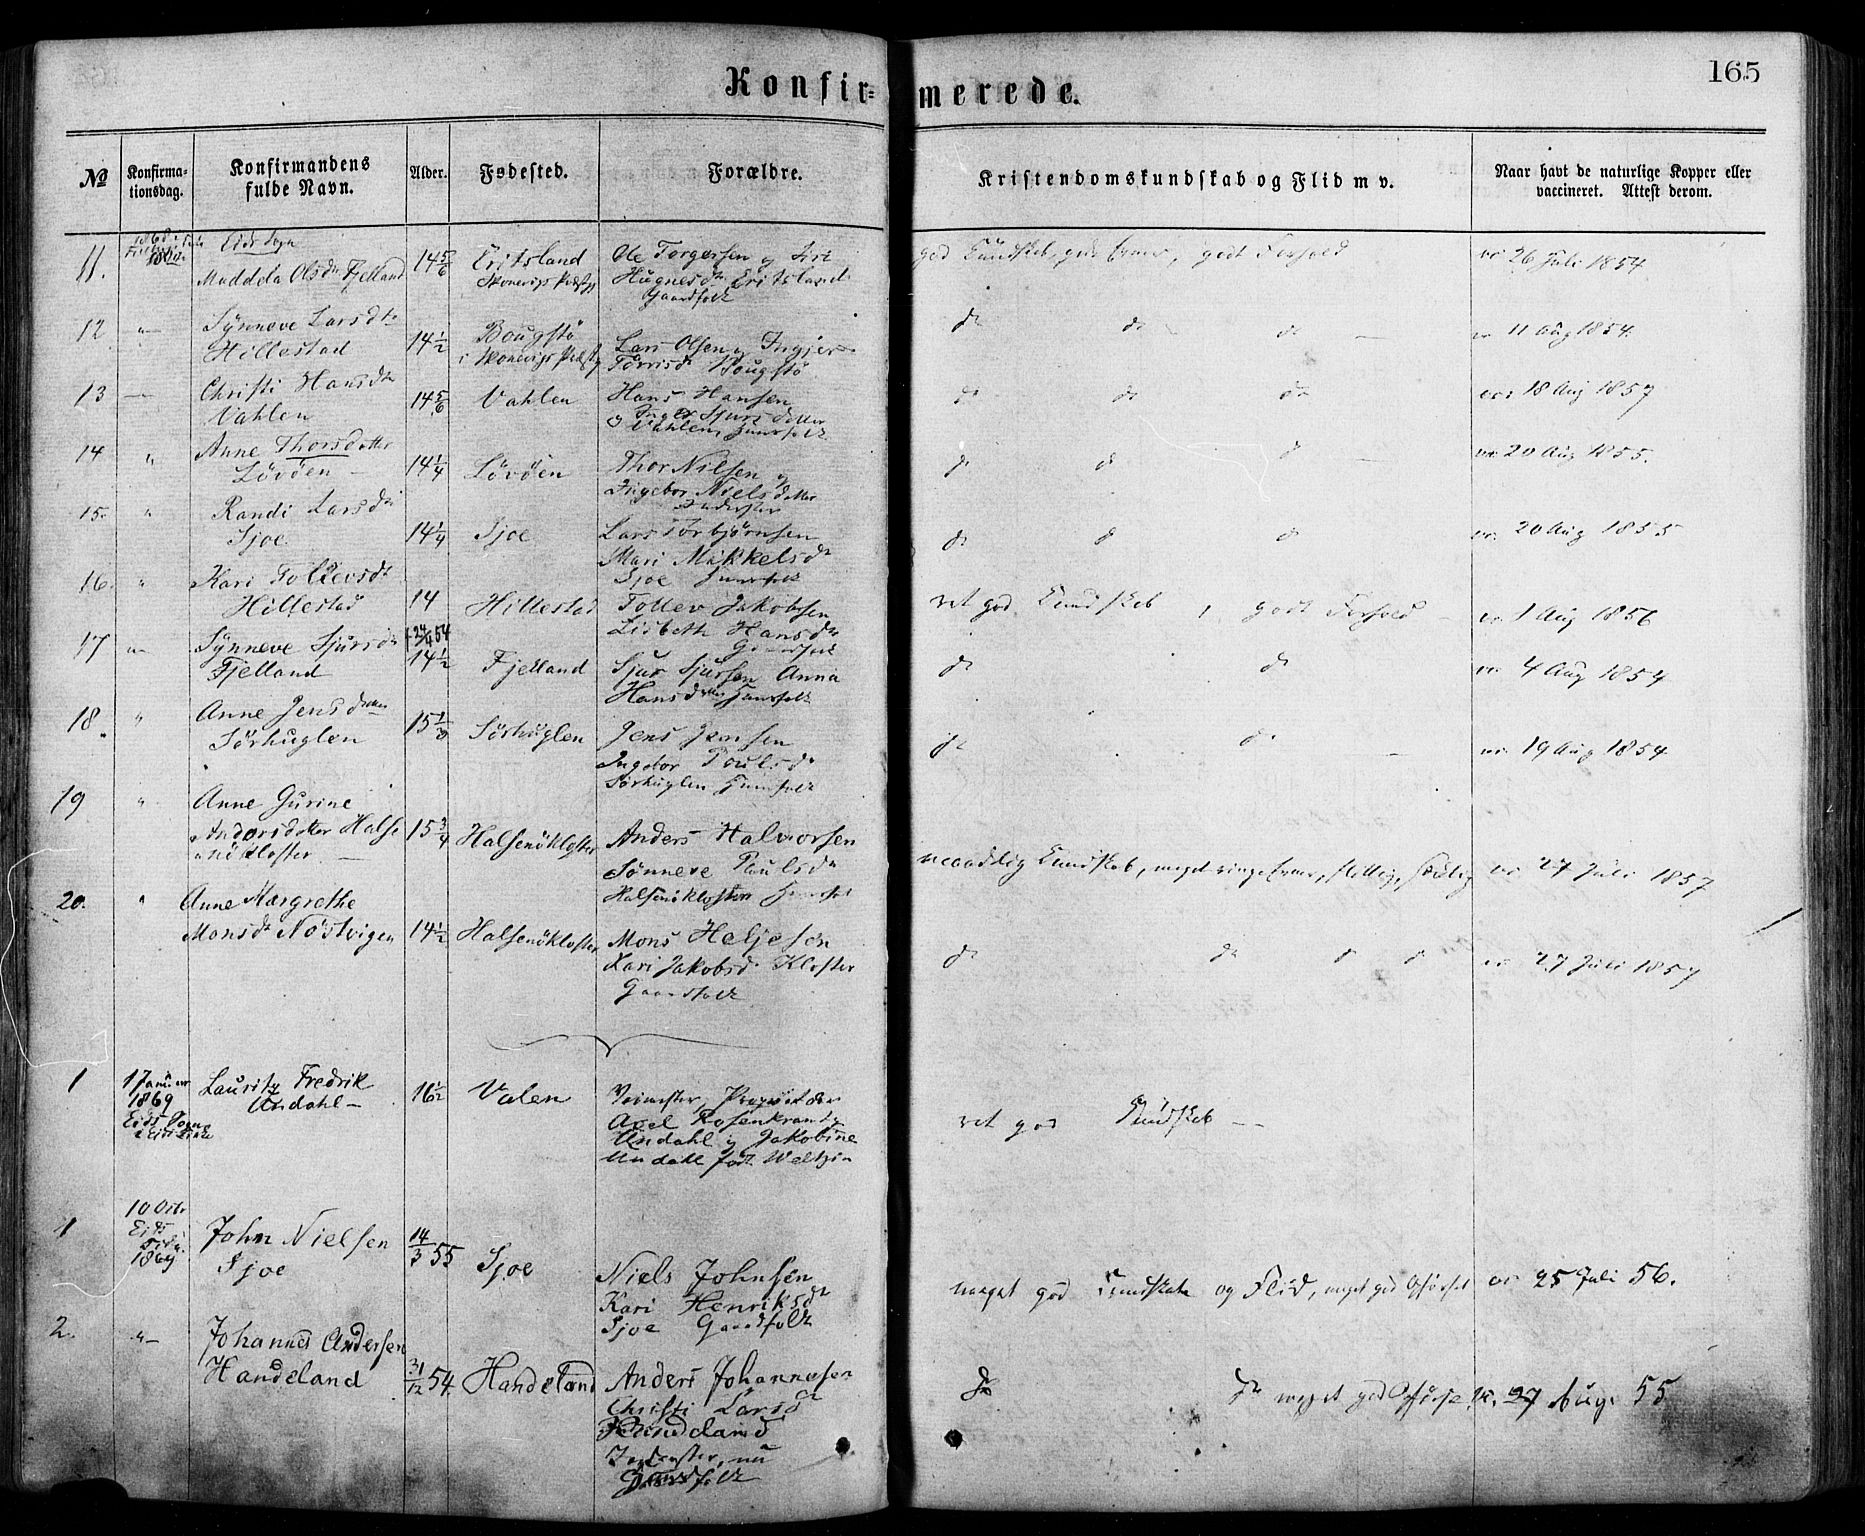 165
Konfir=merede.
№
Konfirma-
tionsdag.
Konfirmandens
fulde Navn.
Alder.
Fødested.
Forældre.
Kristendomskundskab og Flid m v.
Naar havt de naturlige Kopper eller
vaccineret. Attest derom.
11.
Eids Sogn
Maddela Olsdr Fjelland
14 5/6
Eritsland
Ole Torgersen og Siri
Hugnesdr Eritsland
Gaardfolk
god Kundskab, gode Evner, godt Forhold
vc 26 Juli 1854
12 "
Synneve Larsdtr
Hillestad
14 1/2
Bougstø
i Skonevigs Præstg
Lars Olsen og Ingjer
Torrisdr Bougstø
dt dt dt
vc 11 Aug 1854.
13 —
Christi Hansdtr
Vahlen
14 5/6
Vahlen
Hans Hansen
og Inger Sjursdatter
Vahlen,
dt dt dt
vc 18 Aug 1857
14 "
Anne Thorsdatter
Løvöen
14 1/4
Lövöen
Thor Nilsen og
Ingebor Nielsdatter
Inderster
dt dt dt
vc 20 Aug 1855.
15. "
Randi Larsdtr
Sjoe
14 1/4
Sjoe
Lars Torbjørnsen
Mari Mikkelsdr
Sjoe
dt dt dt
vc. 20 Aug 1855
16. "
Kari Tollevsdr
Hillestad
14
Hillestad
Tollev Jakobsen
Lisbeth Hansdr
ret god Kundskab, godt Forhold
vc 1 Aug 1856
17 "
Synneve Sjursdr
Fjelland
24/4 54
14 1/2
Fjelland
Sjur Sjursen Anna
Hansdatter
dt dt
vc. 4 Aug 1854
18. "
Anne Jensdatter
Sörhuglen
15 1/3
Sörhuglen
Jens Jensen
Ingebor Poulsdr
Sörhuglen
dt dt
vc. 19 Aug 1854
19 "
Anne Gurine
Andersdatter Halse
nöKloster
15 3/4
Halsenökloster
Anders Halvorsen
Sønneve Paulsdr
Halsenökloster
maadelig Kundskab, meget ringe Evner, flittig, skikkelig
vc 27 Juli 1857
20. "
Anne Margrethe
Monsdr Nöstvigen
14 1/2
Halsenökloster
Mons Heljesön
Kari Jakobsdr Kloster
Gaardfolk
dt dt dt dt
vc 27 Juli 1857
1
1 Januar
1869
Lauritz Fredrik
Undahl
16 1/2
Valen
Axel Rosenkrantz
Undahl og Jakobine
Undahl født Weltzin
ret god Kundskab
1
10 Octbr
Eids
1869
John Nielsen
Sjoe
14/3 55
Sjoe
Niels Johnsen
Kari Henriksdr
Sjoe Gaardfolk
meget god Kundskab og Flid, meget god Opførsel
vc 25 Juli 56.
2. "
Johannes Andersen
Handeland
31/12 54
Handeland
Anders Johannesen
Christi Larsdr
Handeland
Inderster, nu
Gaardfolk
dt dt meget god Opførse
vc. 27 Aug. 55